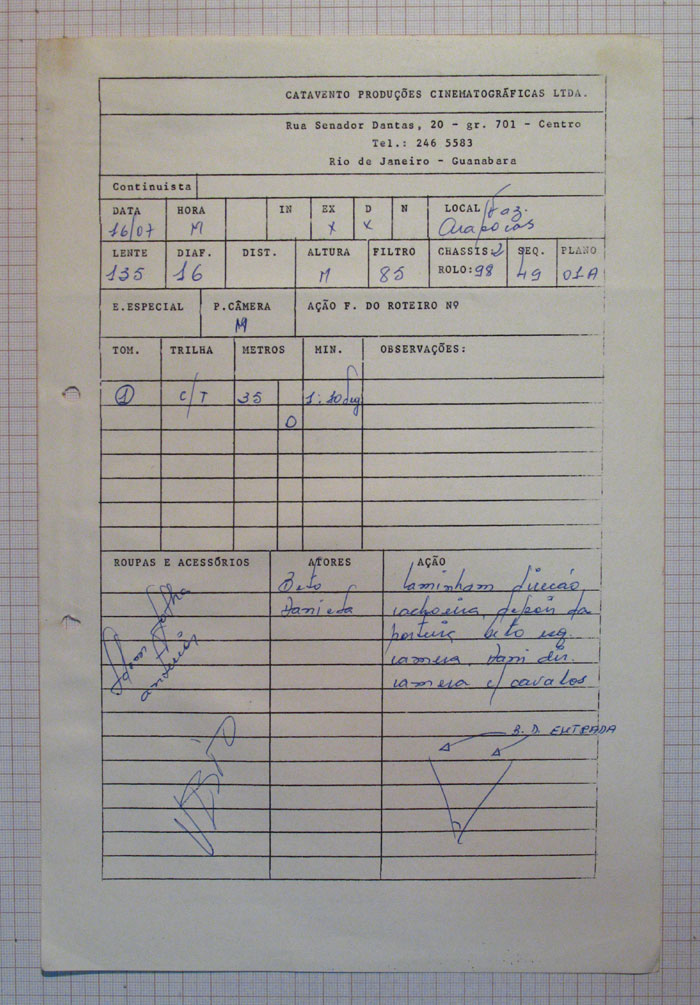 CATAVENTO PRODUÇÕES CINEMATOGRÁFICAS LTDA.
Rua Senador Dantas, 20 - gr. 701 - Centro
Tel.: 246 5583
Rio de Janeiro - Guanabara
Continuista
DATA HORA IN EX D N LOCAL Faz.
16/07 M X X
LENTE DIAF. DIST. ALTURA FILTRO CHASSIS: 2 SEQ. PLANO
135 16 M 85 ROLO: 98 49 01A
E.ESPECIAL P.CÂMERA AÇÃO F. DO ROTEIRO Nº
M
TOM. TRILHA METROS MIN. OBSERVAÇÕES:
1 C/T 35 1:10seg
0
ROUPAS E ACESSÓRIOS ATORES AÇÃO
Beto Caminham direcão
Daniela cachoeira, depois da
porteira beto esq.
camera. Dani dir.
camera c/ cavalos
Idem folha
anterior
B. D. ENTRADA